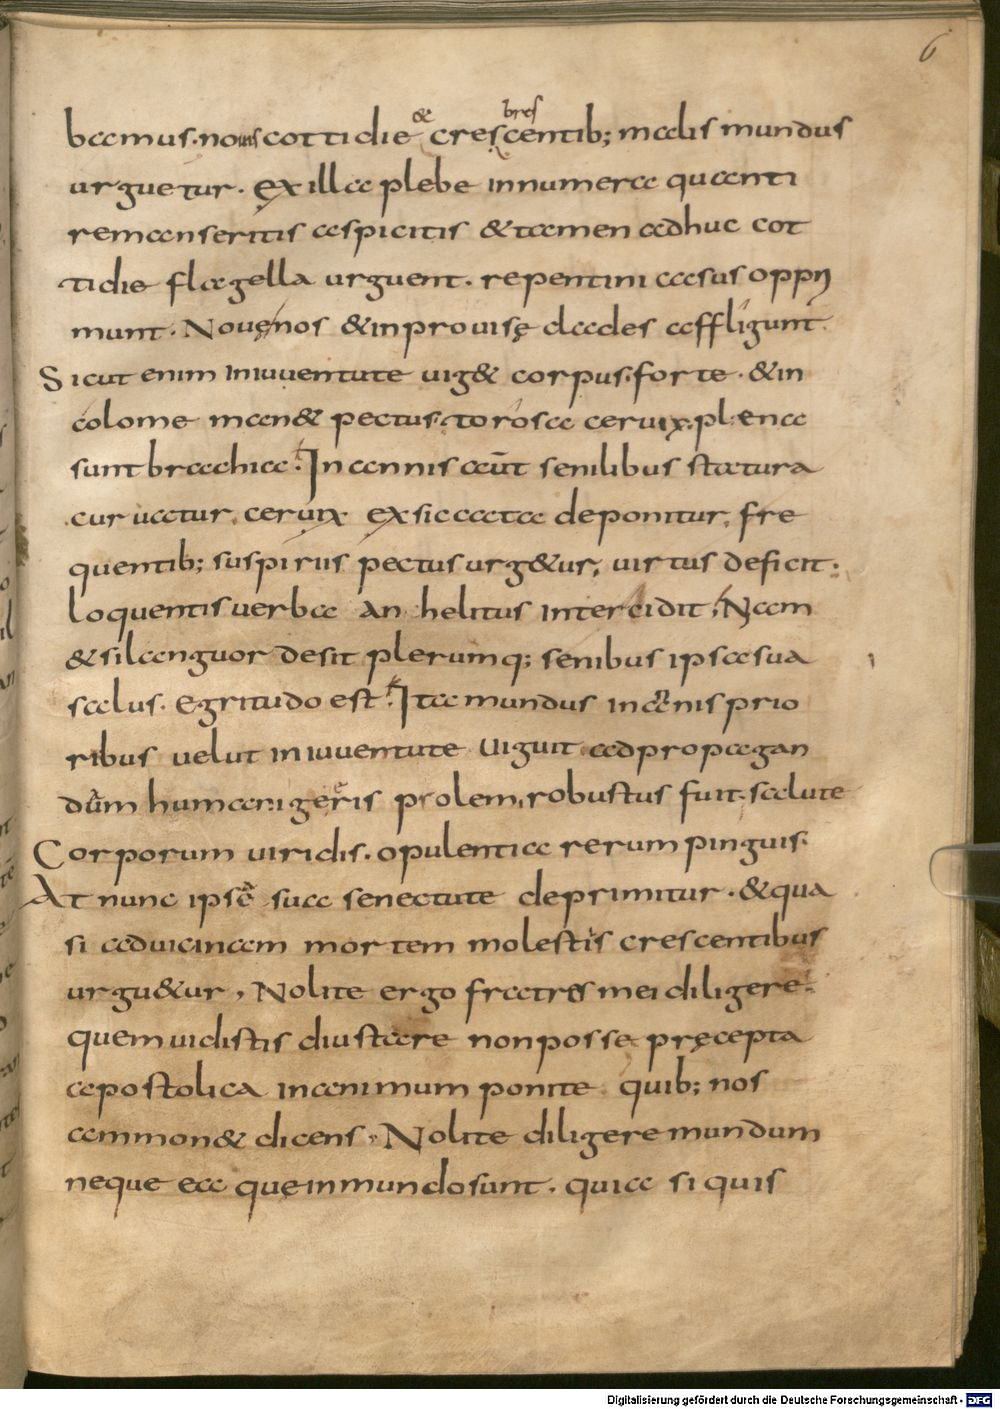 6
bamus. nouis cottidie & crescentib; bres malis mundus
urguetur. Ex illa plebe innumera quanti
remanseritis aspicitis & tamen adhuc cot
tidie flagella urguent. repentini casus oppri
munt. Nouęnos & inprouisę clades affligunt.
Sicut enim iniuuentute uig& corpus. forte. & in
colome man& pectus. torosa ceruix. plena
sunt brachia. In annis aūt senilibus statura
curuatur. ceruix exsiccata deponitur. fre
quentib; suspiriis pectus urg&ur, uirtus deficit.
loquentis uerba anhelitus intercidit, Nam
& si languor desit plerumq; senibus ipsa sua
salus. egritudo est. Ita mundus in annis prio
ribus velut in iuuentute uiguit ad propagan
dum humani generis prolem, robustus fuit. salute
Corporum uiridis. opulentia rerum pinguis.
At nunc ipse sua senectute deprimitur. & qua
si ad uicinam mortem molestiis crescentibus
urgu&ur, Nolite ergo fratres mei diligere.
quem uidistis diu stare non posse pręcepta
apostolica in animum ponite quib; nos
ammon& dicens, Nolite diligere mundum
neque ea que in mundo sunt. quia si quis
Digitalisierung gefördert durch die Deutsche Forschungsgemeinschaft - DFG